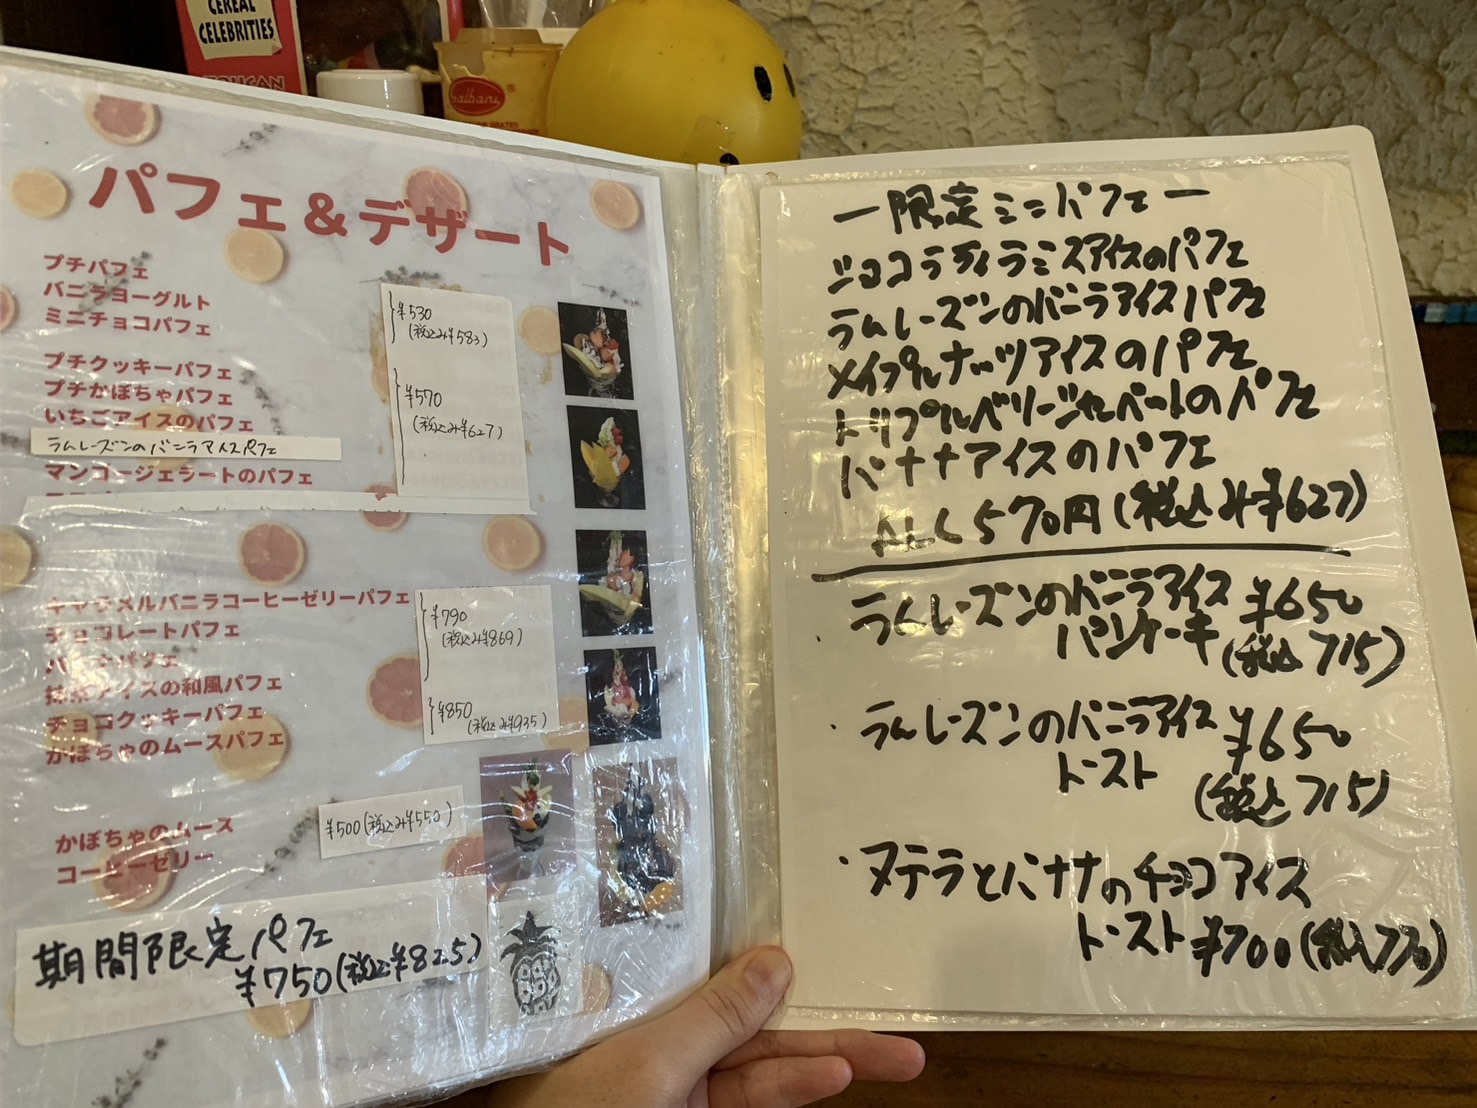 CEREAL
CELEBRITIES
TOUCAN
haibara
パフェ&デザート
プチパフェ
バニラヨーグルト
ミニチョコパフェ
¥530
(税込み¥583)
プチクッキーパフェ
プチかぼちゃパフェ
いちごアイスのパフェ
ラムレーズンのバニラアイスパフェ
マンゴージェラートのパフェ
¥570
(税込み¥627)
キャラメルバニラコーヒーゼリーパフェ
チョコレートパフェ
バナナパフェ
抹茶アイスの和風パフェ
チョコクッキーパフェ
かぼちゃのムースパフェ
¥790
(税込み¥869)
¥850
(税込み¥935)
かぼちゃのムース
コーヒーゼリー
¥500(税込み¥550)
期間限定パフェ
¥750(税込¥825)
ー限定ミニパフェー
ショコラティラミスアイスのパフェ
ラムレーズンのバニラアイスパフェ
メイプルナッツアイスのパフェ
トリプルベリーシャーベートのパフェ
バナナアイスのパフェ
ALL570円(税込み¥627)
・ラムレーズンのバニラアイス ¥650
パンケーキ (税込715)
・ラムレーズンのバニラアイス ¥650
トースト
(税込715)
・ヌテラとバナナのチョコアイス
トースト ¥700(税込770)